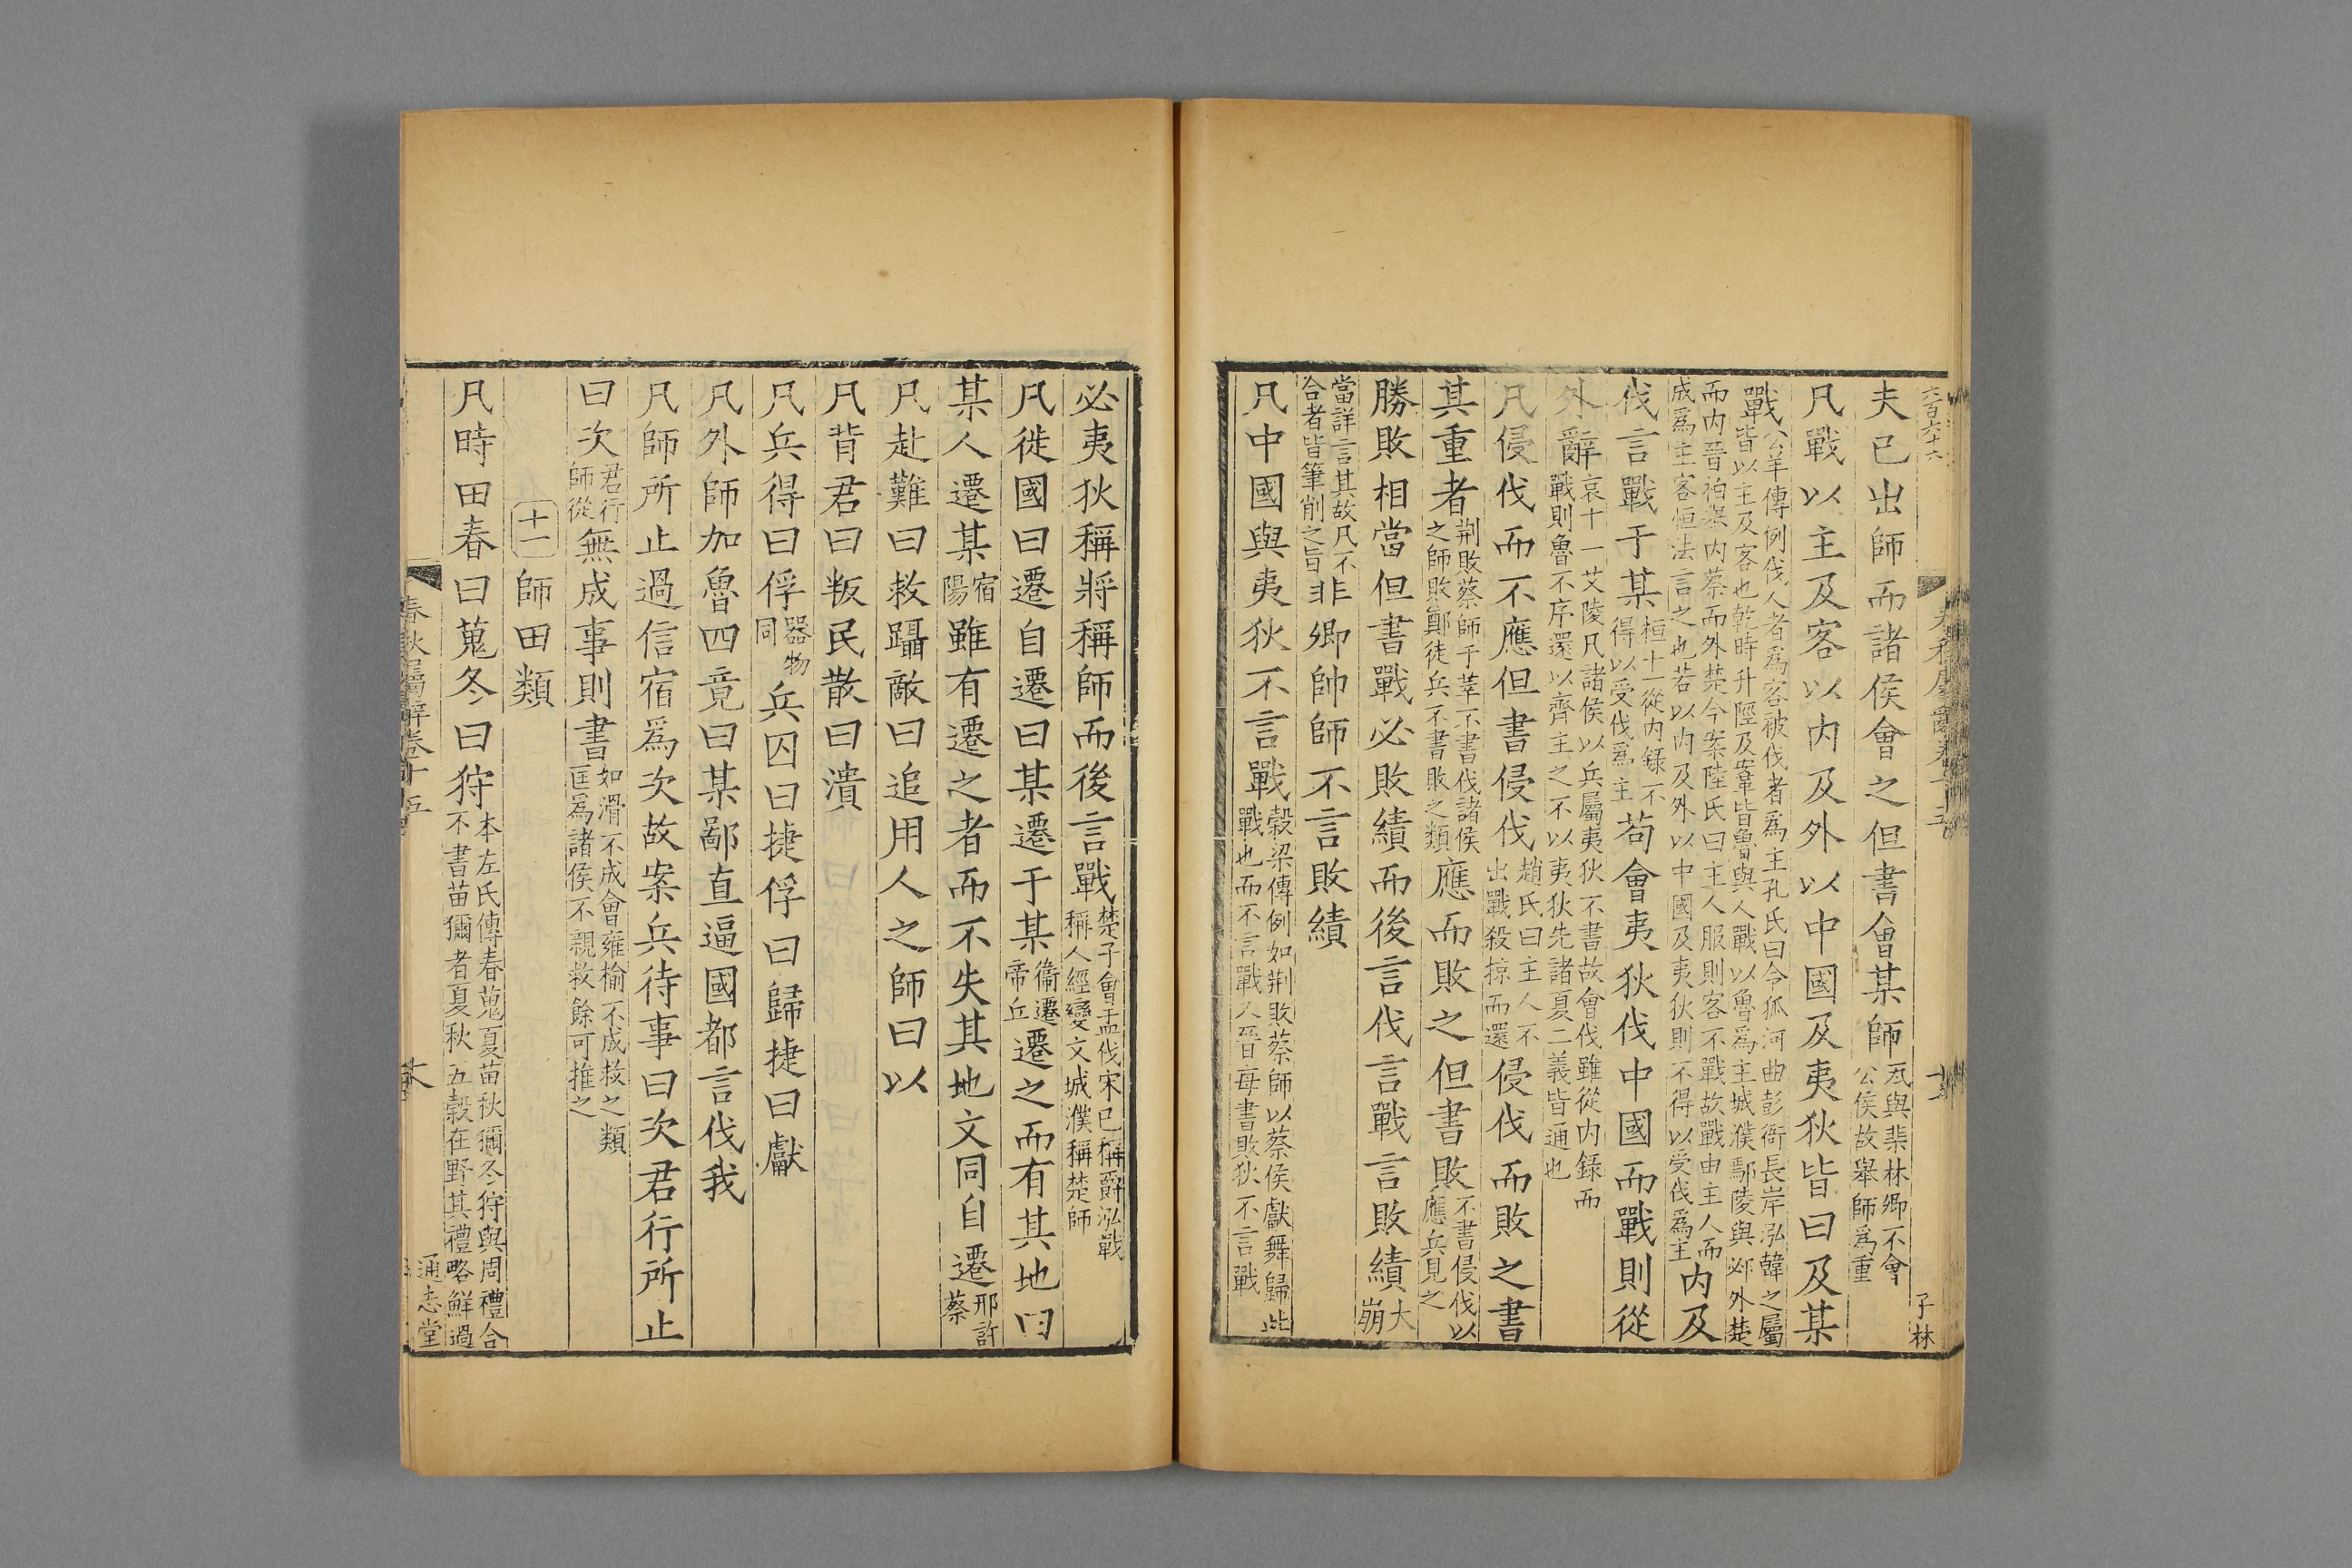 六百六十六
夫已出師而諸侯會之但書會某師
于與棐林卿不會
公侯故舉師為重
凡戰以主及客以内及外以中國及夷狄皆曰及某
戰
公羊傳例伐人者為客被伐者為主孔氏曰令狐河曲彭衙長岸泓韓之屬
皆以主及客也乾時升陘及鞌皆魯與人戰以魯為主城濮鄢陵與邲外楚
而内晉柏舉内蔡而外楚今案陸氏曰主人服則客不戰故戰由主人而
成為主客恒法言之也若以内及外以中國及夷狄則不得以受伐為主
内及
伐言戰于某
桓十一從内錄不
得以受伐為主
苟會夷狄伐中國而戰則從
外辭
哀十一艾陵凡諸侯以兵屬夷狄不書故會伐雖從内錄而
戰則魯不序還以齊主之不以夷狄先諸夏二義皆通也
凡侵伐而不應但書侵伐
趙氏曰主人不
出戰殺掠而還
侵伐而敗之書
其重者
荆敗蔡師于莘不書伐諸侯
之師敗鄭徒兵不書敗之類
應而敗之但書敗
不書侵伐以
應兵見之
勝敗相當但書戰必敗績而後言伐言戰言敗績
大
崩
當詳言其故凡不
合者皆筆削之旨
非卿帥師不言敗績
凡中國與夷狄不言戰
穀梁傳例如荆敗蔡師以蔡侯獻舞歸此
戰也而不言戰又晉每書敗狄不言戰
春秋屬辭卷十五
子林
必夷狄稱將稱師而後言戰
楚子會盂伐宋已稱爵泓戰
稱人經變文城濮稱楚師
凡徙國曰遷自遷曰某遷于某
衞遷
帝丘
遷之而有其地曰
某人遷某
宿
陽
雖有遷之者而不失其地文同自遷
邢許
蔡
凡赴難曰救躡敵曰追用人之師曰以
凡背君曰叛民散曰潰
凡兵得曰俘
器物
同
兵囚曰捷俘曰歸捷曰獻
凡外師加魯四竟曰某鄙直逼國都言伐我
凡師所止過信宿為次故案兵待事曰次君行所止
曰次
君行
師從
無成事則書
如滑不成會雍榆不成救之類
匡為諸侯不親救餘可推之
十一 師田類
凡時田春曰蒐冬曰狩
本左氏傳春蒐夏苗秋獮冬狩與周禮合
不書苗獮者夏秋五穀在野其禮略鮮過
春秋屬辭卷十五
通志堂